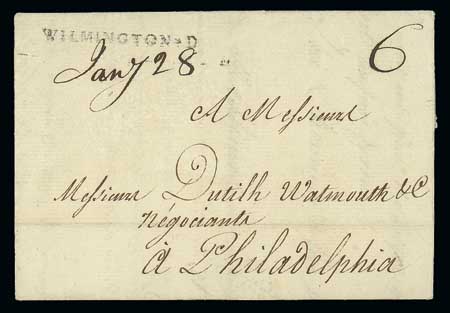 WILMINGTON*D
Jany 28 6
A Messieurs
Messieurs Dutilh Watmouth & C
Négociants
à Philadelphia